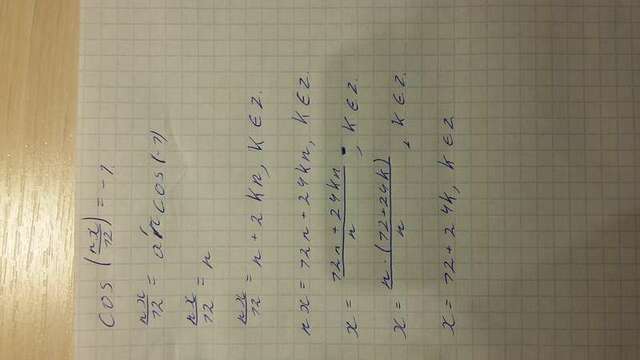 cos (πx/12) = -1
πx/12 = arccos(-1)
πx/12 = π
πx/12 = π + 2kπ, k ∈ Z.
πx = 12π + 24kπ, k ∈ Z.
x = 12π + 24kπ/π, k ∈ Z.
x = π · (12 + 24k)/π, k ∈ Z.
x = 12 + 24k, k ∈ Z